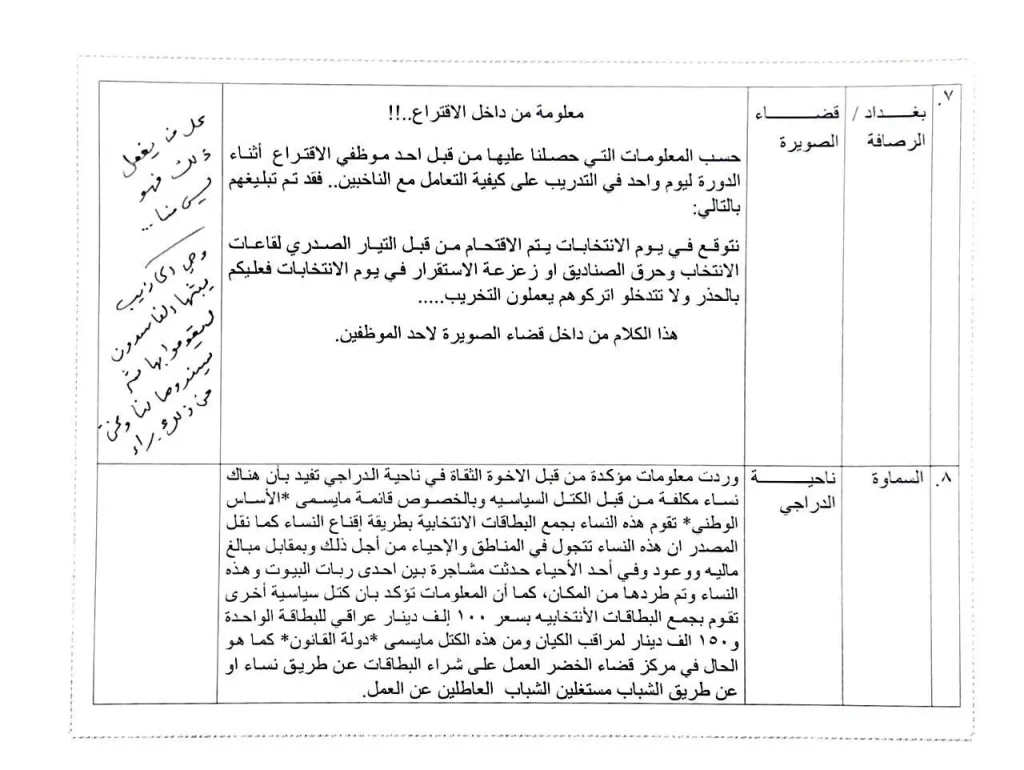 ٧.
بغداد /
الرصافة
قضاء
الصويرة
معلومة من داخل الاقتراع..!!
حسب المعلومات التي حصلنا عليها من قبل احد موظفي الاقتراع أثناء
الدورة ليوم واحد في التدريب على كيفية التعامل مع الناخبين.. فقد تم تبليغهم
بالتالي:
نتوقع في يوم الانتخابات يتم الاقتحام من قبل التيار الصدري لقاعات
الانتخاب وحرق الصناديق او زعزعة الاستقرار في يوم الانتخابات فعليكم
بالحذر ولا تتدخلو اتركوهم يعملون التخريب.....
هذا الكلام من داخل قضاء الصويرة لاحد الموظفين.
كل من يفعل
ذلك فهو
ليس منا...
وهي اكاذيب
يبثها الفاسدون
ليقوموا بها ثم
يسندوها لنا ونحن
من ذلك براء
٨.
السماوة
ناحية
الدراجي
وردت معلومات مؤكدة من قبل الاخوة الثقاة في ناحية الدراجي تفيد بأن هناك
نساء مكلفة من قبل الكتل السياسيه وبالخصوص قائمة مايسمى *الأساس
الوطني* تقوم هذه النساء بجمع البطاقات الانتخابية بطريقة إقناع النساء كما نقل
المصدر ان هذه النساء تتجول في المناطق والإحياء من أجل ذلك وبمقابل مبالغ
ماليه ووعود وفي أحد الأحياء حدثت مشاجرة بين احدى ربات البيوت وهذه
النساء وتم طردها من المكان، كما أن المعلومات تؤكد بان كتل سياسية أخرى
تقوم بجمع البطاقات الأنتخابيه بسعر ١٠٠ إلف دينار عراقي للبطاقة الواحدة
و١٥٠ الف دينار لمراقب الكيان ومن هذه الكتل مايسمى *دولة القانون* كما هو
الحال في مركز قضاء الخضر العمل على شراء البطاقات عن طريق نساء او
عن طريق الشباب مستغلين الشباب العاطلين عن العمل.